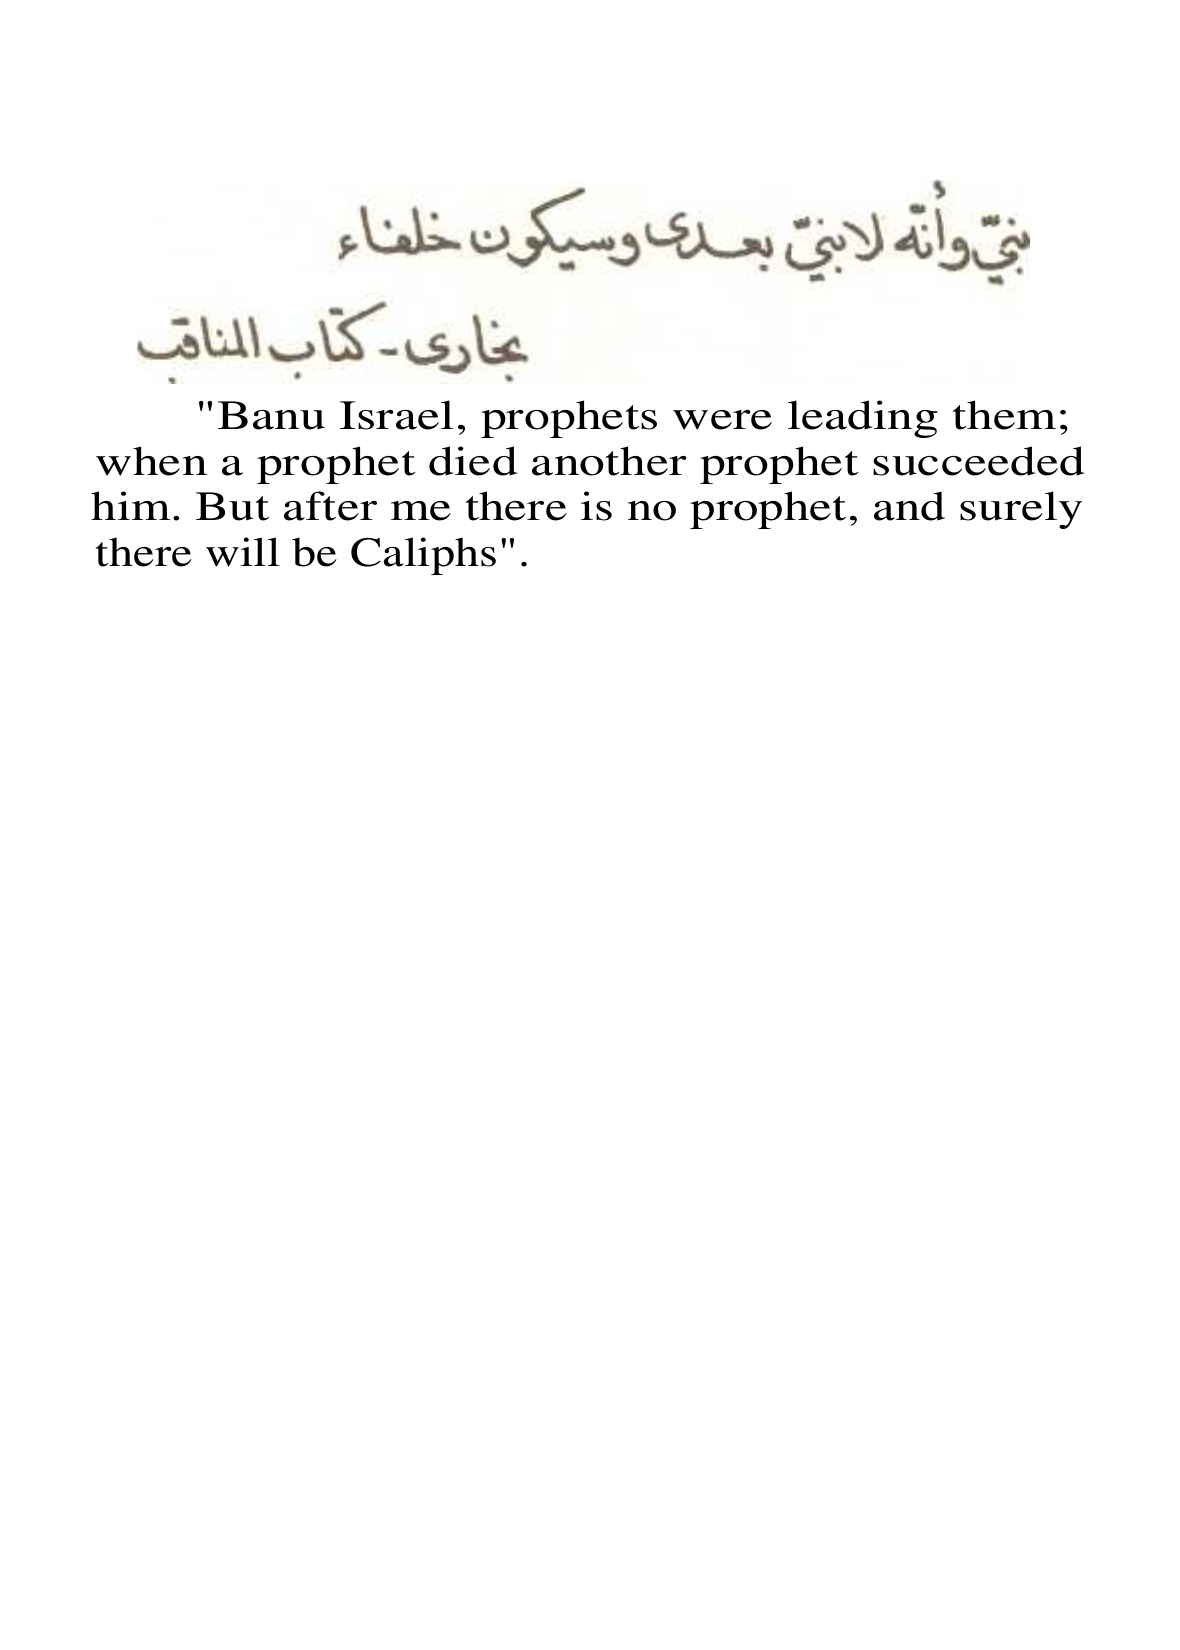 نبيّ وأنّه لا نبيّ بعدى وسيكون خلفاء
بخارى - كتاب المناقب
"Banu Israel, prophets were leading them;
when a prophet died another prophet succeeded
him. But after me there is no prophet, and surely
there will be Caliphs".